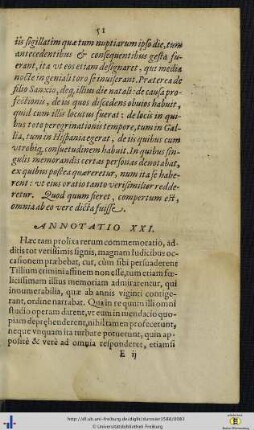 51
iis sigillatim quæ tum nuptiarum ipso die, tum
antecedentibus & consequentibus gesta fue-
rant, ita ut eos etiam designaret, qui media
nocte in geniali toro se inuiserant. Præterea de
filio Sanxio, deq, illius die natali: de causa pro-
fectionis, de iis quos discedens obuios habuit,
quid cum illis locutus fuerat: de locis in qui-
bus toto peregrinationis tempore, tum in Gal-
lia, tum in Hispania egerat, de iis quibus cum
utrobiq, consuetudinem habuit. In quibus sin-
gulis memorandis certas personas denotabat,
ex quibus postea quæreretur, num ita se habe-
rent: ut eius oratio tanto verisimilior redde-
retur. Quod quum fieret, compertum est,
omnia ab eo vere dicta fuisse.
ANNOTATIO XXI.
Hæc tam prolixa rerum commemoratio, ad-
ditis tot verissimis signis, magnam Iudicibus oc-
casionem præbebat, cur, cùm sibi persuaderent
Tillium criminis affinem non esse, tum etiam fœ-
licissimam illius memoriam admirarentur, qui
innumerabilia, quæ ab annis viginti contige-
rant, ordine narrabat. Qua in re quum illi omni
studio operam darent, ut eum in mendacio quo-
piam deprehenderent, nihil tamen profecerunt,
neque vnquam ita turbare potuerunt, quin ap-
positè & verè ad omnia responderet, etiamsi
E ij
http://dl.ub.uni-freiburg.de/diglit/
© Universitätsbibliothek Freiburg